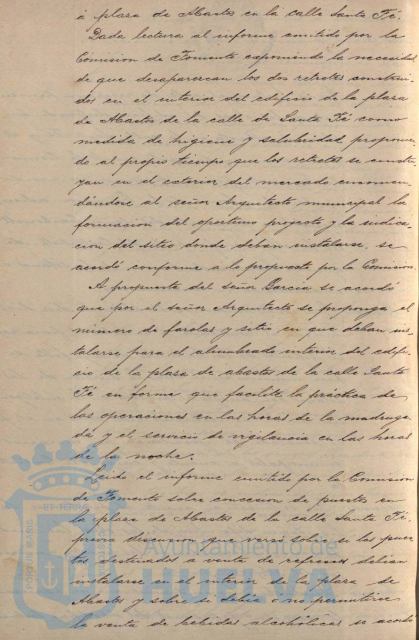 á plaza de Abastos en la calle Santa Fé.
Dada lectura al informe emitido por la
Comision de Fomento exponiendo la necesidad
de que desaparezcan los dos retretes construi-
dos en el interior del edificio de la plaza
de Abastos de la calle de Santa Fé como
medida de higiene y salubridad, proponien-
do al propio tiempo que los retretes se constru-
yan en el exterior del mercado encomen-
dándose al señor Arquitecto municipal la
formacion del oportuno proyecto y la indica-
cion del sitio donde deban instalarse, se
acordó conforme a lo propuesto por la Comision
A propuesta del señor Garcia se acordó
que por el señor Arquitecto se proponga el
número de farolas y sitio en que deban ins-
talarse para el alumbrado interior del edifi-
cio de la plaza de abastos de la calle Santa
Fé en forma que facilite la práctica de
las operaciones en las horas de la madruga-
da y el servicio de vigilancia en las horas
de la noche.
Leido el informe emitido por la Comision
de Fomento sobre concesion de puestos en
la plaza de Abastos de la calle Santa Fé,
previa discusion que versó sobre si los pues-
tos destinados a venta de refrescos debian
instalarse en el interior de la plaza de
Abastos y sobre si debia o no permitirse
la venta de bebidas alcohólicas se acordó
Ayuntamiento de
HUELVA